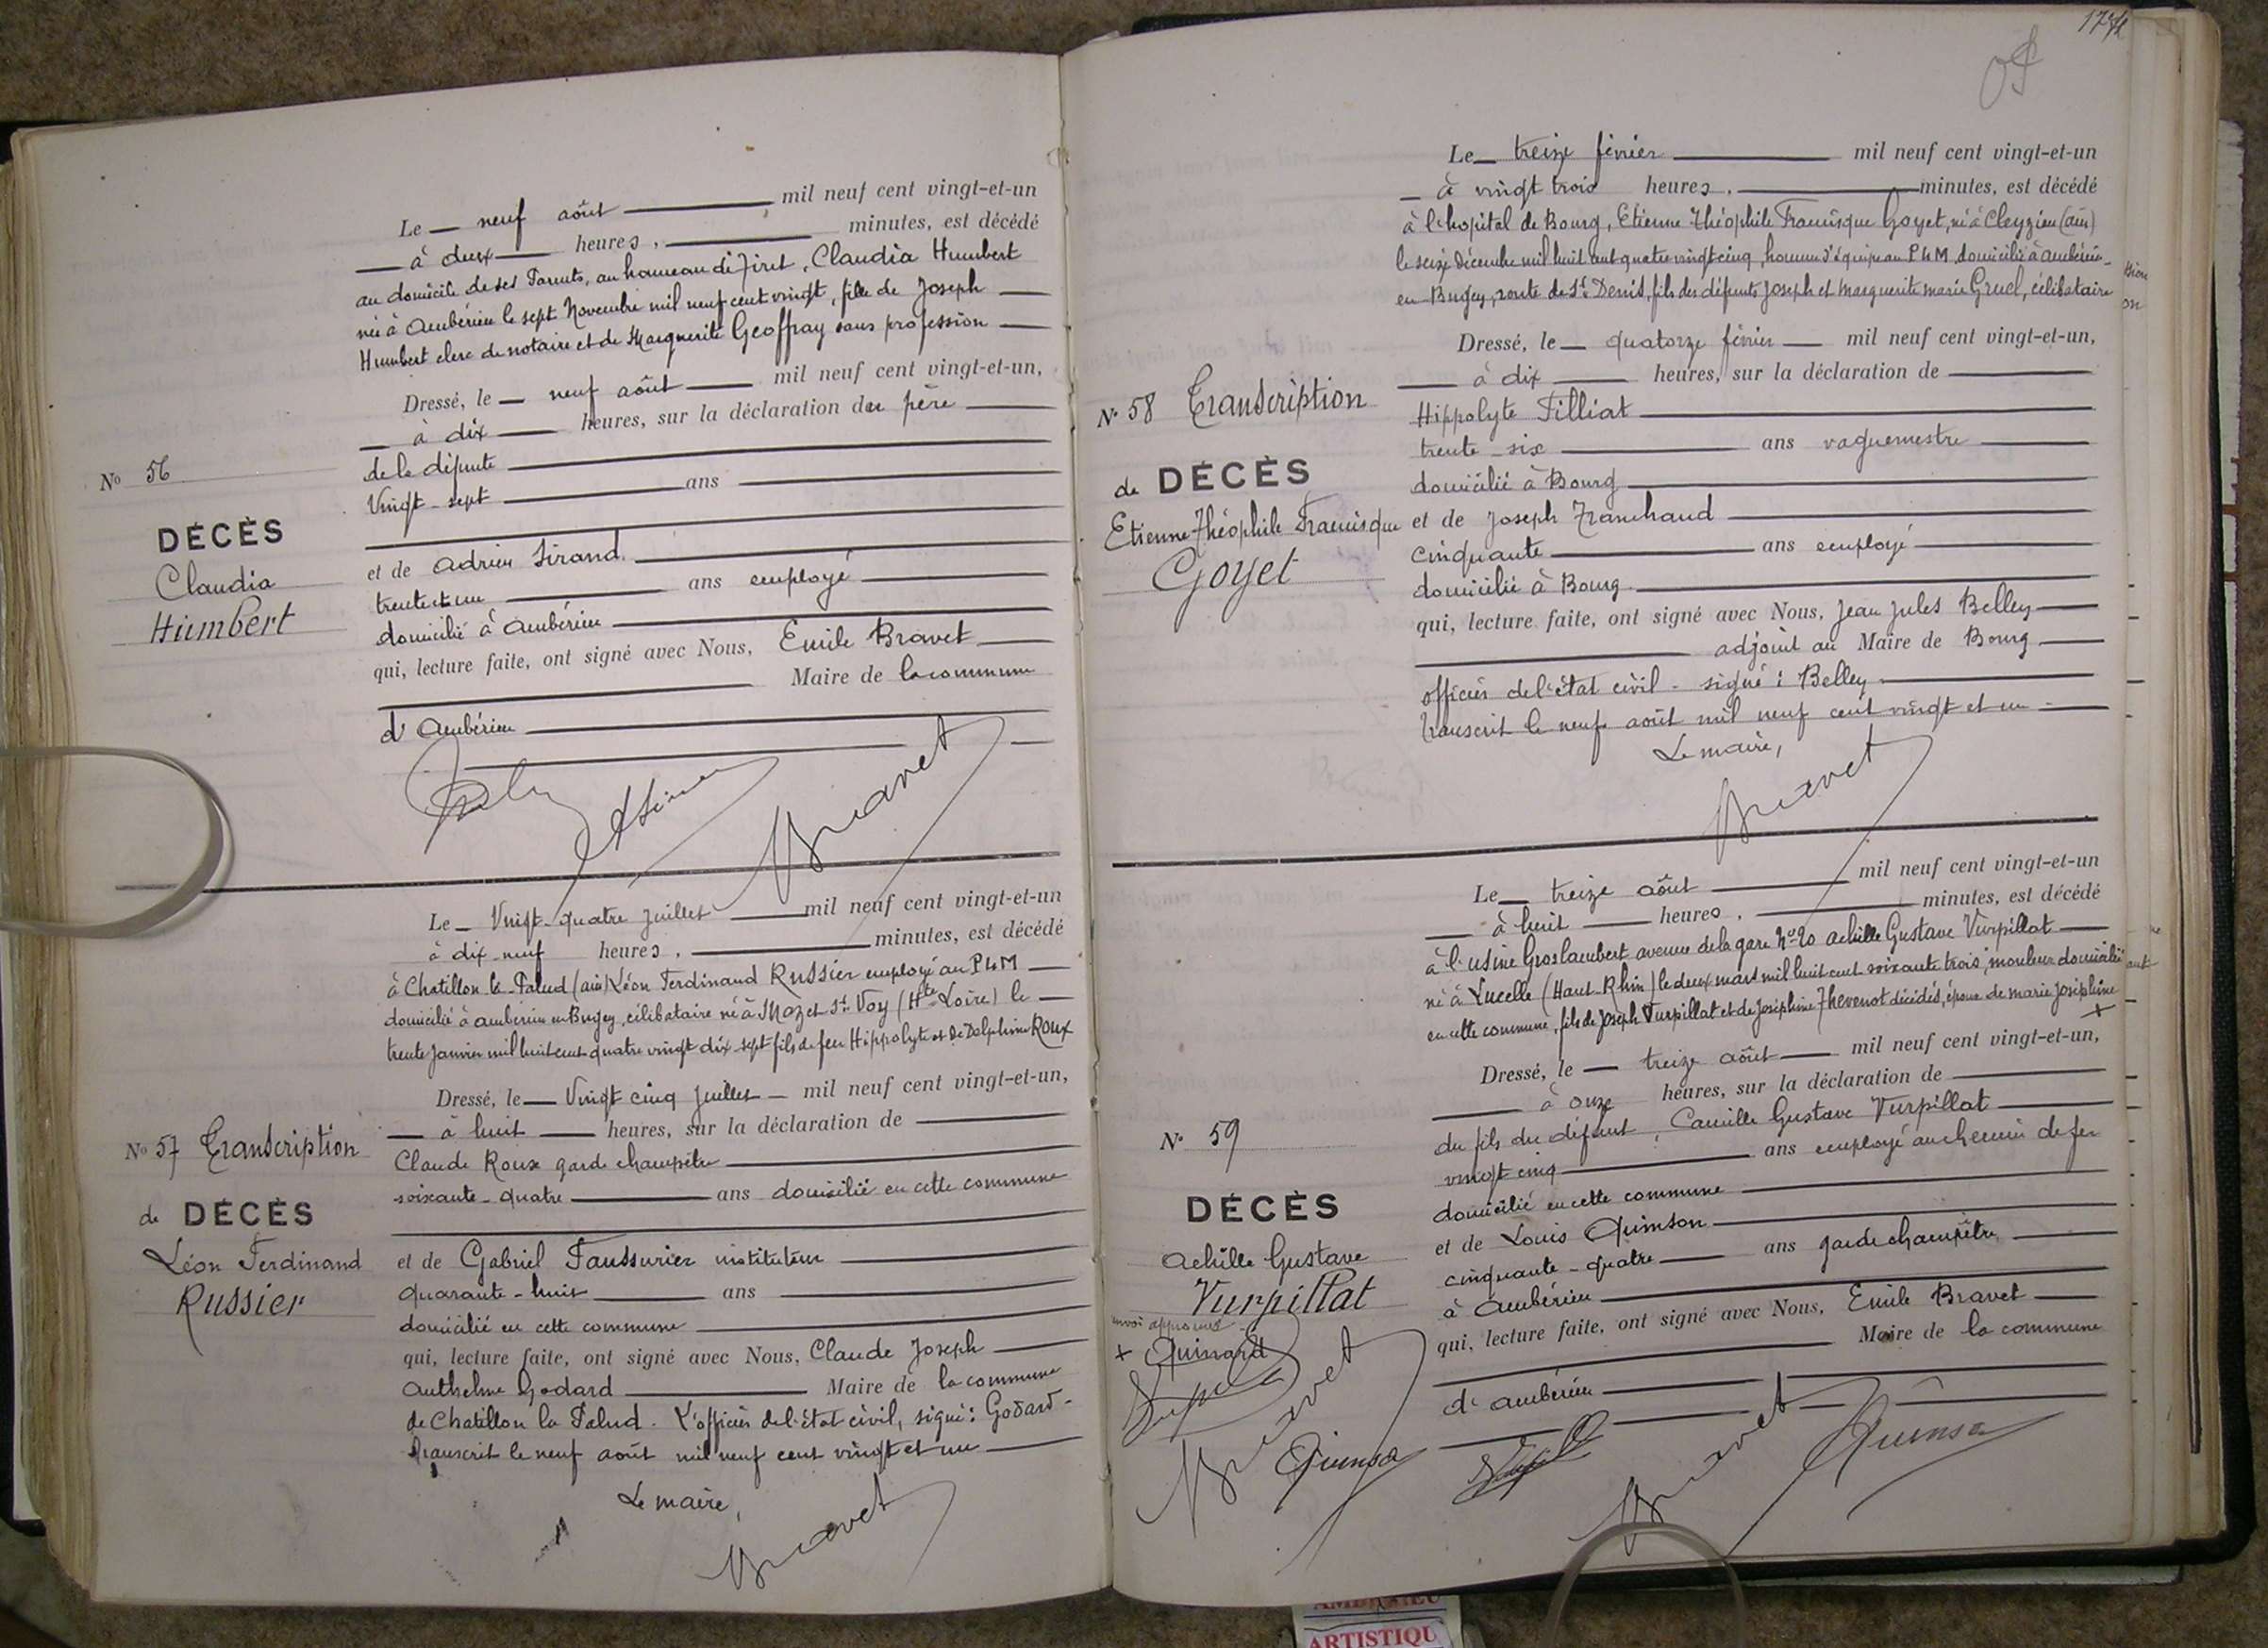 Nº 56
DÉCÈS
Claudia
Humbert
Le neuf août mil neuf cent vingt-et-un
à deux heures, minutes, est décédé
au domicile de ses Parents, au hameau de Tiret, Claudia Humbert
née à Ambérieu le sept Novembre mil neuf cent vingt, fille de Joseph
Humbert clerc de notaire et de Marguerite Geoffray sans profession
Dressé, le neuf août mil neuf cent vingt-et-un,
à dix heures, sur la déclaration du père
de la défunte
Vingt-sept ans
et de Adrien Sirand
trente et un ans employé
domicilié à Ambérieu
qui, lecture faite, ont signé avec Nous, Emile Bravet
Maire de la commune
d'Ambérieu
Bravet
Nº 57 Transcription
de DÉCÈS
Léon Ferdinand
Russier
Le Vingt-quatre juillet mil neuf cent vingt-et-un
à dix-neuf heures, minutes, est décédé
à Chatillon la Palud (ain) Léon Ferdinand Russier employé au PLM
domicilié à ambérieu en Bugey, célibataire né à Mazet St Voy (Hte Loire) le
trente Janvier mil huit cent quatre vingt dix-sept fils de feu Hippolyte et de Delphine Roux
Dressé, le Vingt cinq Juillet mil neuf cent vingt-et-un,
à huit heures, sur la déclaration de
Claude Roux garde champêtre
soixante-quatre ans domicilié en cette commune
et de Gabriel Faussurier instituteur
quarante-huit ans
domicilié en cette commune
qui, lecture faite, ont signé avec Nous, Claude Joseph
Anthelme Godard Maire de la commune
de Chatillon la Palud. L'officier de l'état civil, signé: Godard-
Transcrit le neuf août mil neuf cent vingt et un
Le maire,
Bravet
174
Nº 58 Transcription
de DÉCÈS
Etienne Théophile Francisque
Goyet
Le treize février mil neuf cent vingt-et-un
à vingt trois heures, minutes, est décédé
à l'hopital de Bourg, Etienne Théophile Francisque Goyet, né à Cleyzieu (ain)
le seize décembre mil huit cent quatre vingt cinq, homme d'équipe au PLM, domicilié à ambérieu-
en Bugey, route de St Denis, fils des défunts Joseph et Marguerite marie Gruel, célibataire
Dressé, le quatorze février mil neuf cent vingt-et-un,
à dix heures, sur la déclaration de
Hippolyte Filliat
trente-six ans vaguemestre
domicilié à Bourg
et de Joseph Tranchand
cinquante ans employé
domicilié à Bourg
qui, lecture faite, ont signé avec Nous, Jean Jules Belley
adjoint au Maire de Bourg
officier de l'état civil - signé: Belley
transcrit le neuf août mil neuf cent vingt et un
Le maire,
Bravet
Nº 59
DÉCÈS
Achille Gustave
Vurpillat
renvoi approuvé
+ Quinard
Bravet
Quinson
Le treize août mil neuf cent vingt-et-un
à huit heures, minutes, est décédé
à l'usine Groslambert avenue de la gare Nº 20 Achille Gustave Vurpillat
né à Lucelle (Haut-Rhin) le deux mars mil huit cent soixante trois, mouleur domicilié
en cette commune, fils de Joseph Vurpillat et de Joséphine Thevenot décédés, époux de marie Joséphine
+
Dressé, le treize août mil neuf cent vingt-et-un,
à onze heures, sur la déclaration de
du fils du défunt, Camille Gustave Vurpillat
vingt cinq ans employé au chemin de fer
domicilié en cette commune
et de Louis Quinson
cinquante-quatre ans garde champêtre
à Ambérieu
qui, lecture faite, ont signé avec Nous, Emile Bravet
Maire de la commune
d'ambérieu
Bravet
Quinson
ARTISTIQU